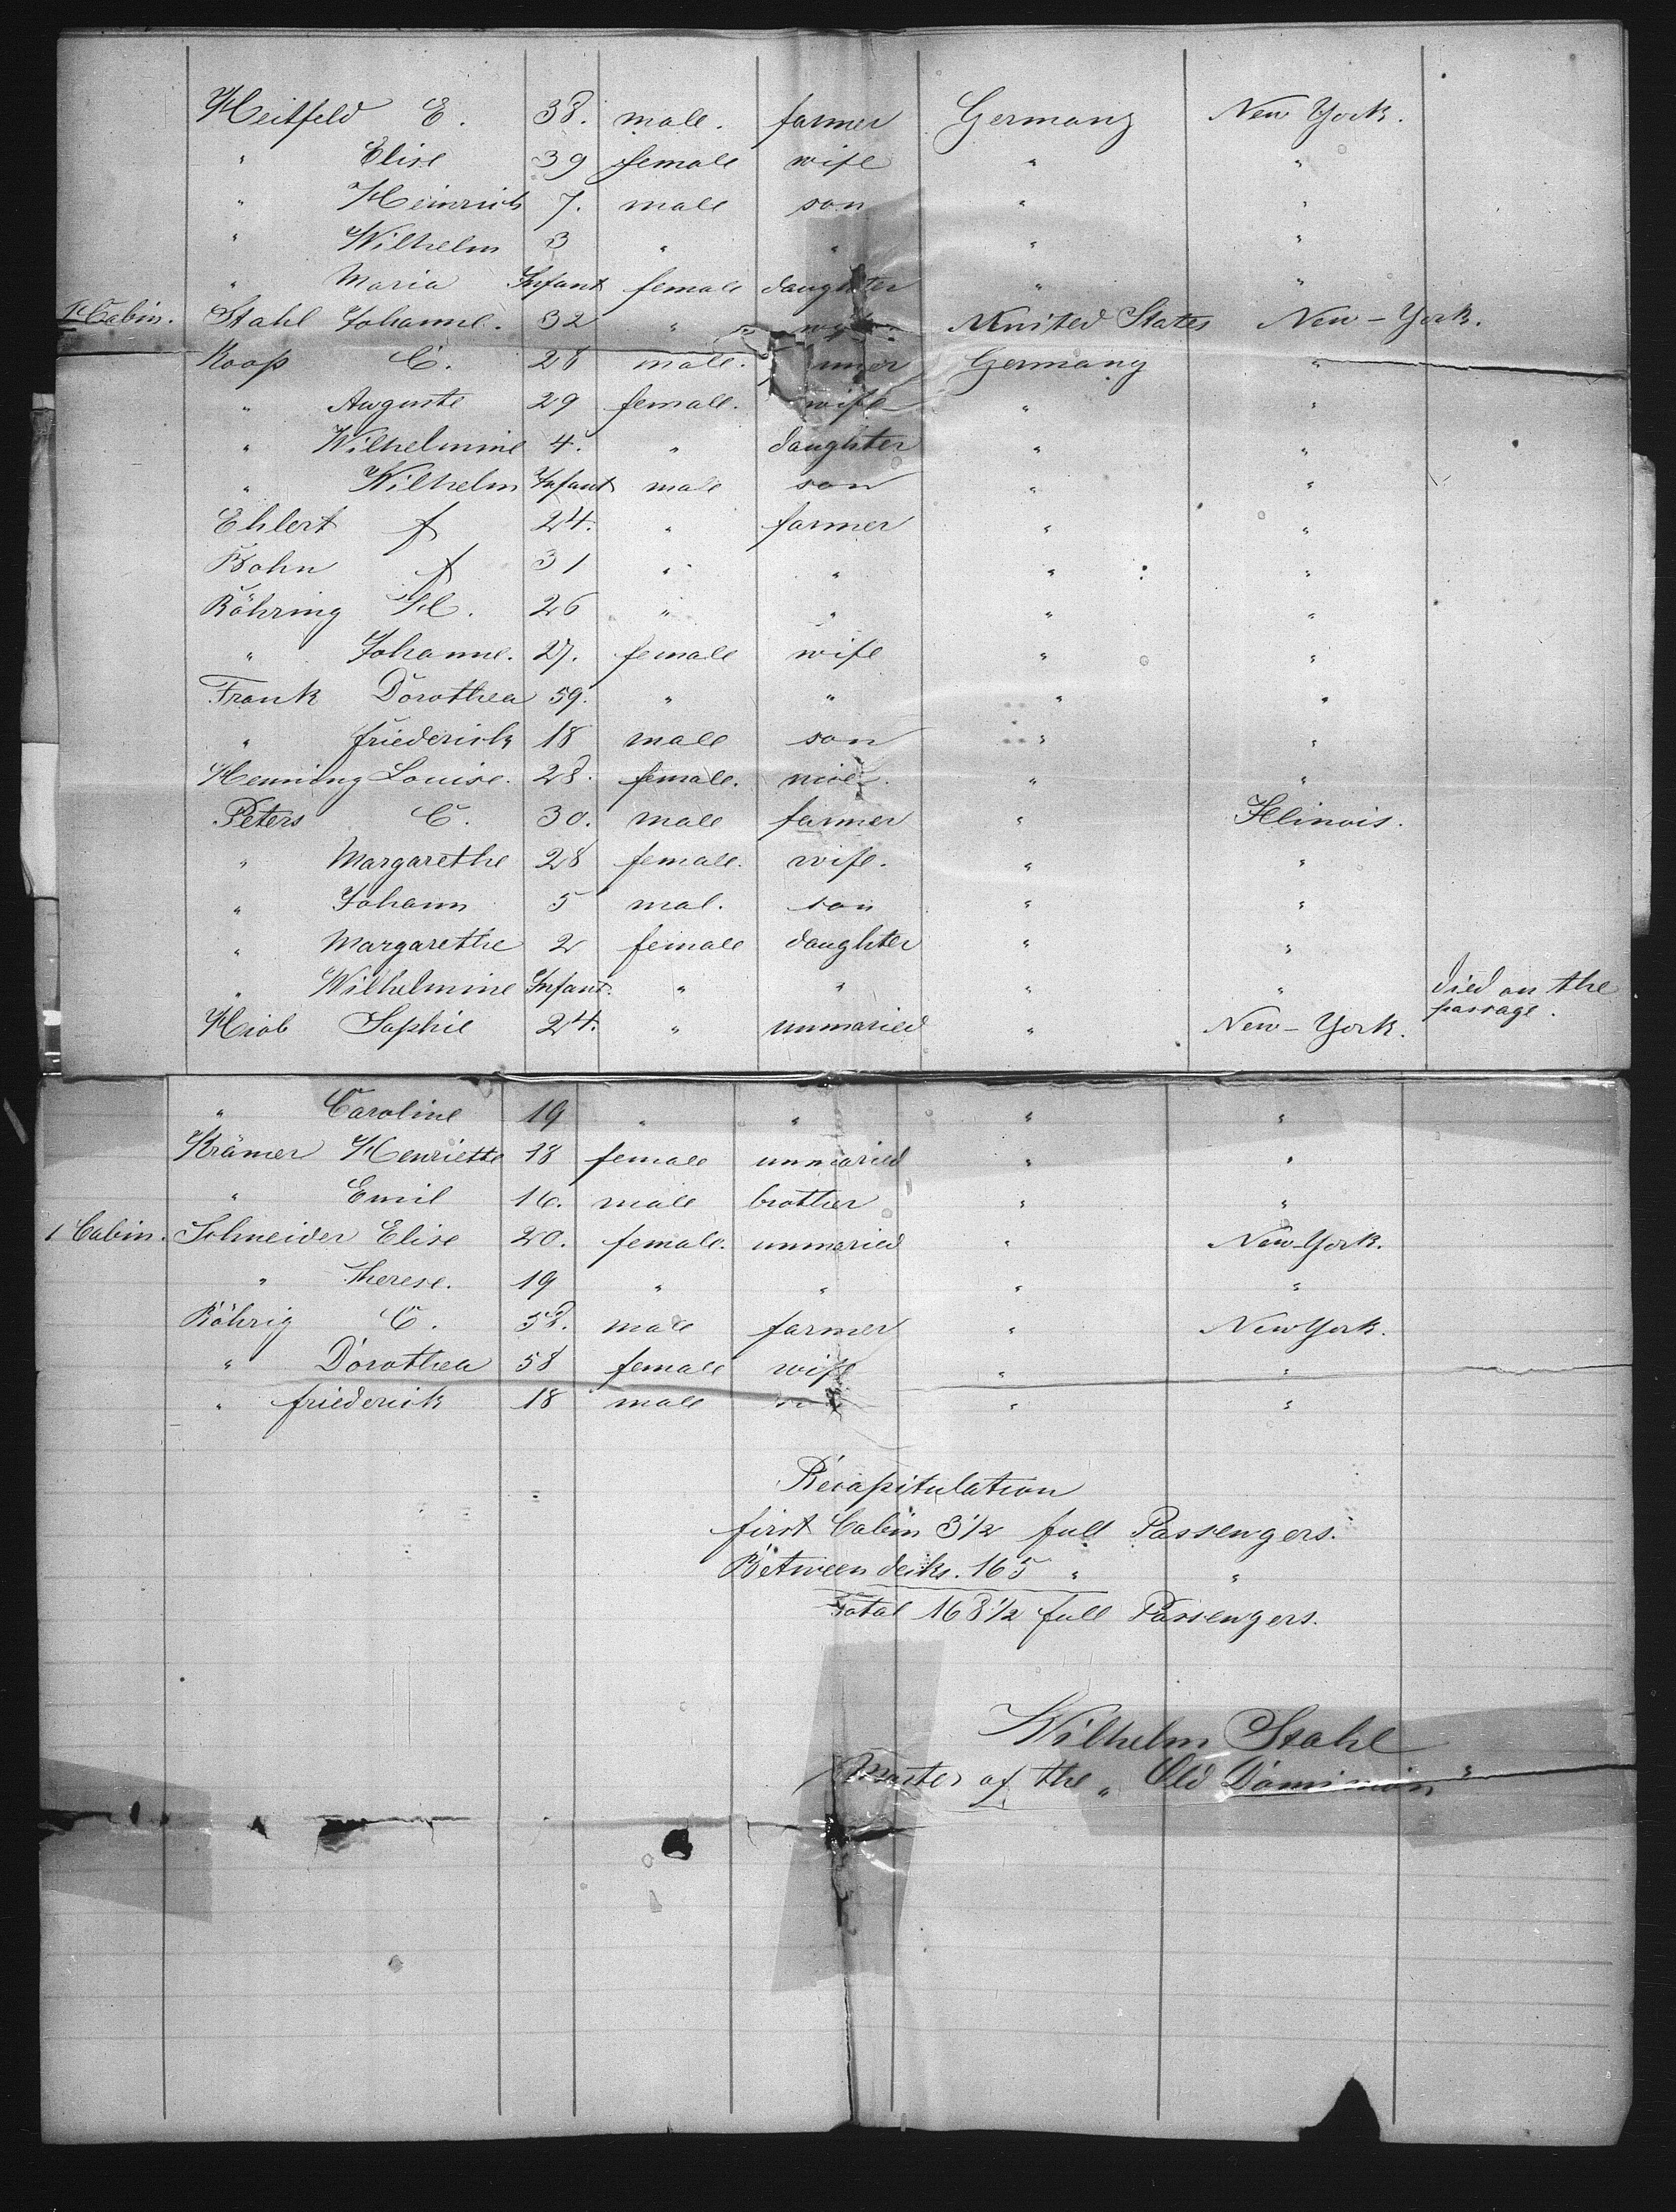 Heitfeld E. 38. male. farmer Germany New York.
" Elise 39 female wife " "
" Heinrich 7. male son " "
" Wilhelm 3 " " " "
" Maria Infant female daughter " "
1 Cabin. Stahl Johanne. 32 " wife. United States New-York.
Koop C. 28 male. Germany "
" Auguste 29 female. wife " "
" Wilhelmine 4. " daughter " "
" Wilhelm Infant male son " "
Ehlert f 24. " farmer " "
Bohn f 31 " " " "
Röhring H. 26 " " " "
" Johanne. 27. female wife " "
Frank Dorothea 59. " " " "
" friederich 18 male son " "
Henning Louise. 28. female. " "
Peters C. 30. male farmer " Illinois.
" Margarethe 28 female. wife. " "
" Johann 5 mal. son " "
" Margarethe 2 female daughter " "
" Wilhelmine Infant. " " " " died on the passage.
Hiob Sophie 24. " unmaried " New-York.
" Caroline 19 " " " "
Krämer Henriette 18 female unmaried " "
" Emil 16. male brother " "
1 Cabin. Schneider Elise 20. female. unmaried " New-York.
" Therese. 19 " " " "
Röhrig C. 58. male farmer " New York.
" Dorothea 58 female wife " "
" friederich 18 male " "
Recapitulation
first Cabin 3 1/2 full Passengers.
Between decks. 165 " "
Total 168 1/2 full Passengers.
Wilhelm Stahl
Master of the "Old Dominion"